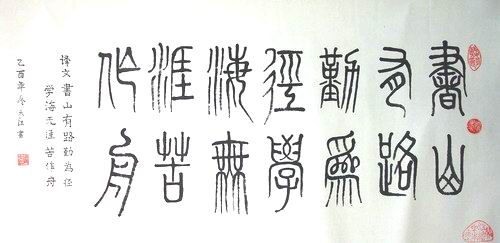 書山
有路
勤爲
徑學
海無
涯苦
作舟
译文 書山有路勤為径
学海无涯苦作舟
乙酉年 書